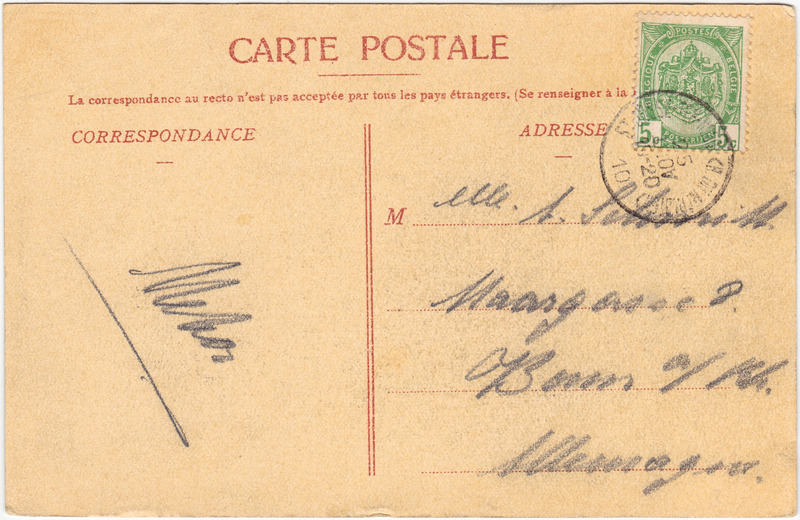 CARTE POSTALE
La correspondance au recto n'est pas acceptée par tous les pays étrangers. (Se renseigner à la
CORRESPONDANCE
ADRESSE
POSTES
BELGIQUE
BELGIË
POSTERIJEN
5c 5c
10
M
Mlle. A.
Maargasse 8.
Bonn a/Rh.
Allemagne.